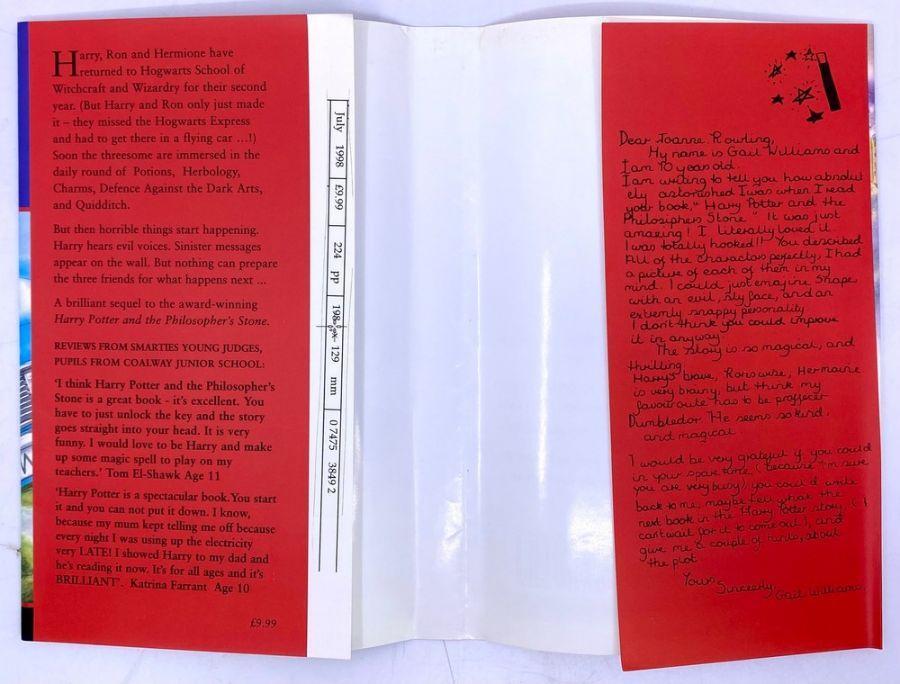 Harry, Ron and Hermione have
returned to Hogwarts School of
Witchcraft and Wizardry for their second
year. (But Harry and Ron only just made
it – they missed the Hogwarts Express
and had to get there in a flying car ...!)
Soon the threesome are immersed in the
daily round of Potions, Herbology,
Charms, Defence Against the Dark Arts,
and Quidditch.
But then horrible things start happening.
Harry hears evil voices. Sinister messages
appear on the wall. But nothing can prepare
the three friends for what happens next ...
A brilliant sequel to the award-winning
Harry Potter and the Philosopher's Stone.
REVIEWS FROM SMARTIES YOUNG JUDGES,
PUPILS FROM COALWAY JUNIOR SCHOOL:
'I think Harry Potter and the Philosopher's
Stone is a great book - it's excellent. You
have to just unlock the key and the story
goes straight into your head. It is very
funny. I would love to be Harry and make
up some magic spell to play on my
teachers.' Tom El-Shawk Age 11
'Harry Potter is a spectacular book.You start
it and you can not put it down. I know,
because my mum kept telling me off because
every night I was using up the electricity
very LATE! I showed Harry to my dad and
he's reading it now. It's for all ages and it's
BRILLIANT'. Katrina Farrant Age 10
£9.99
July 1998 £9.99 224 pp 198 129 mm 0 7475 3849 2
Dear Joanne Rowling,
My name is Gail Williams and
I am 10 years old.
I am writing to tell you how absolut
ely astonished I was when I read
your book," Harry Potter and the
Philosiphers Stone " It was just
amazing! I literally loved it.
I was totally hooked!! You described
All of the characters perfectly, I had
a picture of each of them in my
mind. I could just emajine Snape
with an evil, sly face, and an
extremly snappy personality
I don't think you could improve
it in anyway.
The Story is so magical, and
thrilling.
Harry's brave, Rons wise, Hermaine
is very brainy, but think my
favouroute has to be proffecer
Dumbledor. He seems so kind,
and magical.
I would be very grateful if you could
in your spare time, (because I'm sure
you are very busy) you could write
back to me, maybe tell what the
next book in the Harry Potter story, (I
cant wait for it to come out), and
give me a couple of hints, about
the plot.
Yours Sincerely
Gail Williams